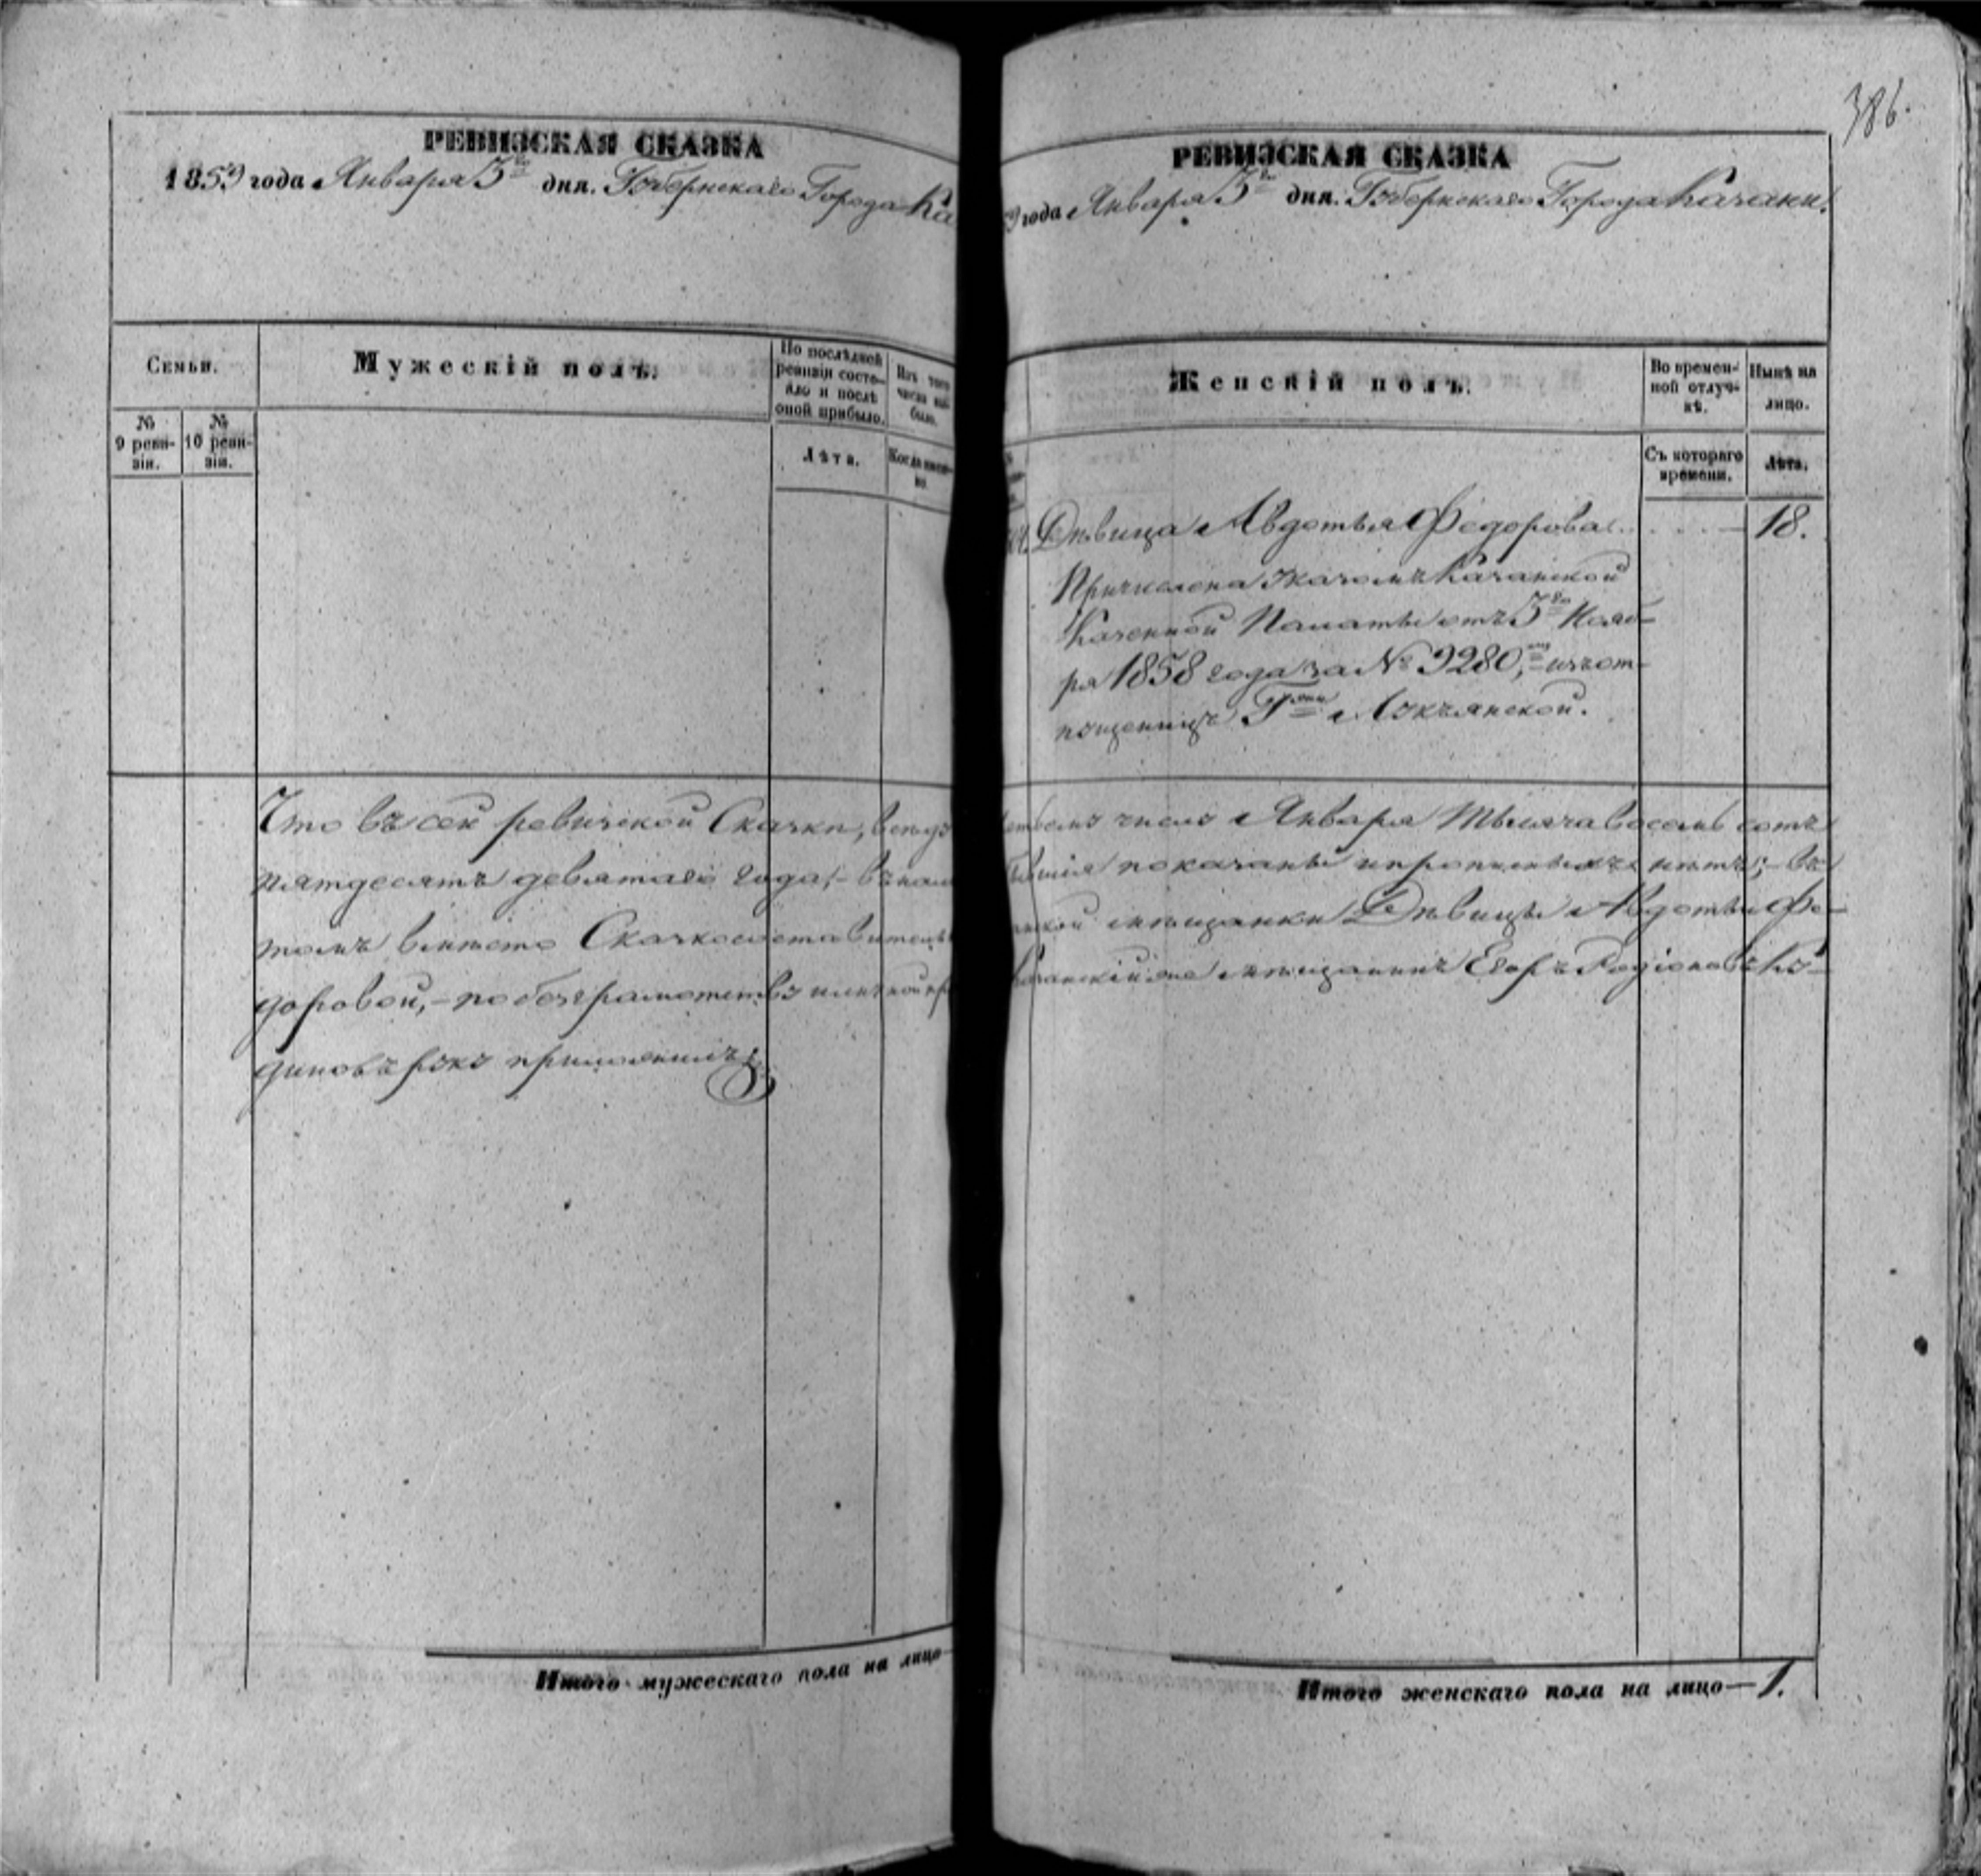 РЕВИЗСКАЯ СКАЗКА
1859 года Января 5го дня. Губернскаго Города Ка
Семьи.
Мужескій полъ.
По послѣдней ревизіи состояло и послѣ оной прибыло.
Изъ того числа выбыло.
№ 9 ревизіи.
№ 10 ревизіи.
Лѣта.
Когда именно.
Что въ сей ревизской Сказки,
пятдесятъ девятаго года,-
томъ вмѣсто Сказкосоставительн
доровой,- по безграмотству
диновъ руку приложилъ
Итого мужескаго пола на лицо
386.
РЕВИЗСКАЯ СКАЗКА
9 года Января 5го дня. Губернскаго Города Казани.
Женскій полъ.
Во временной отлучкѣ.
Нынѣ на лицо.
Съ котораго времени.
Лѣта.
Дѣвица Авдотья Федорова 18.
Причислена указомъ Казанской
Казенной Палаты отъ 5го Нояб-
ря 1858 года за № 9280, изъ от-
пущенницъ Гжи
числа Января тысяча восемь сотъ
показаны и прописныхъ нѣтъ;- въ
мѣщанки Дѣвицы Авдотьи Фе-
Казанскій же мѣщанинъ Егоръ Родіоновъ Ку-
Итого женскаго пола на лицо—1.